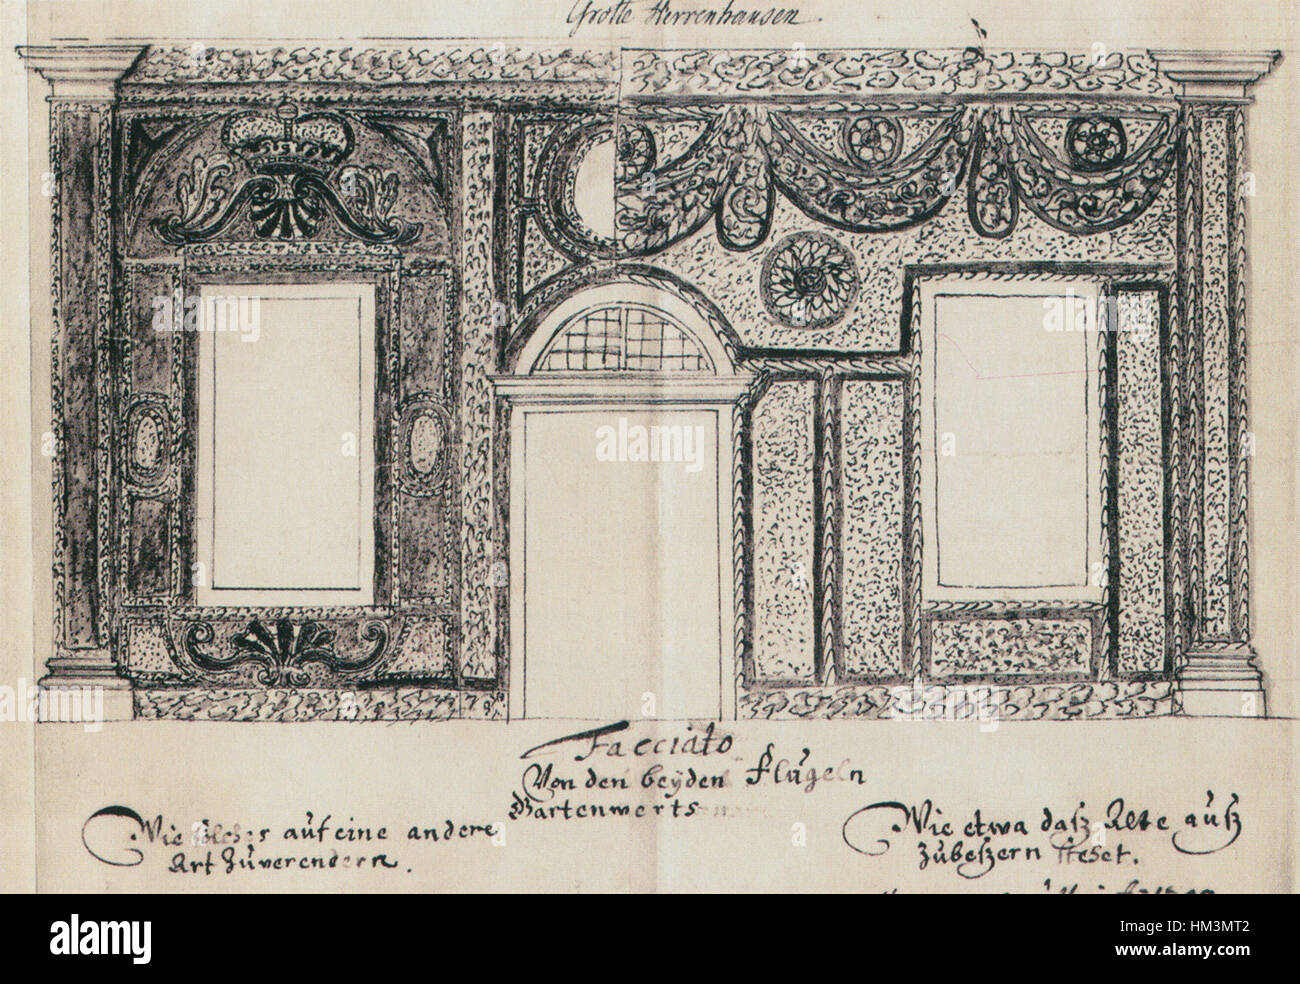 Grotte Herrenhausen.
Facciato
Von den beÿden Flügeln
Gartenwerts
Wie solches auf eine andere
Art Zuverendern.
Wie etwa daß Alte auß
Zubeßern stehet.
alamy
alamy stock photo
HM3MT2
www.alamy.com